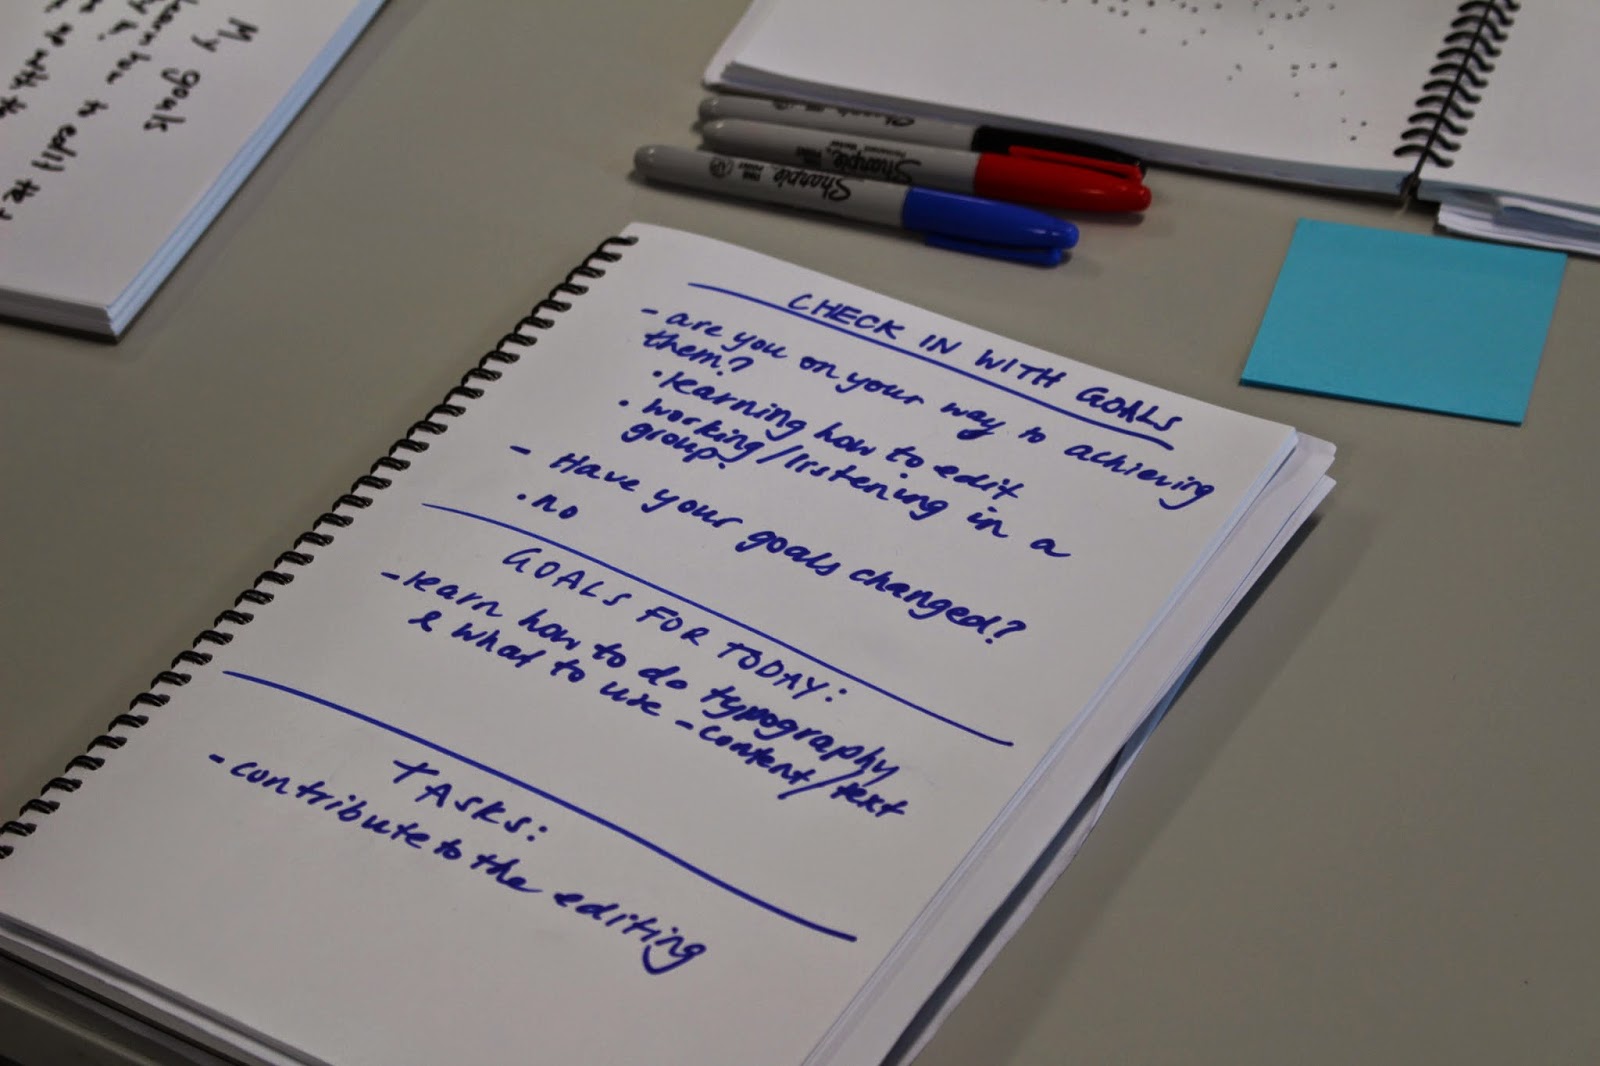 My goals
learn how to edit
CHECK IN WITH GOALS
- are you on your way to achieving
them?
• learning how to edit
• working/listening in a
group.
- Have your goals changed?
• no
GOALS FOR TODAY:
- learn how to do typography
& what to use - content/text
TASKS:
- contribute to the editing
Sharpie
Sharpie
Sharpie